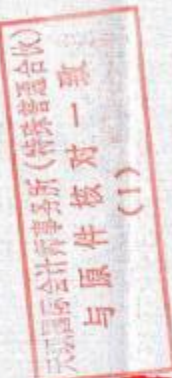 天源国际会计师事务所(特殊普通合伙)
与原件核对一致
(1)